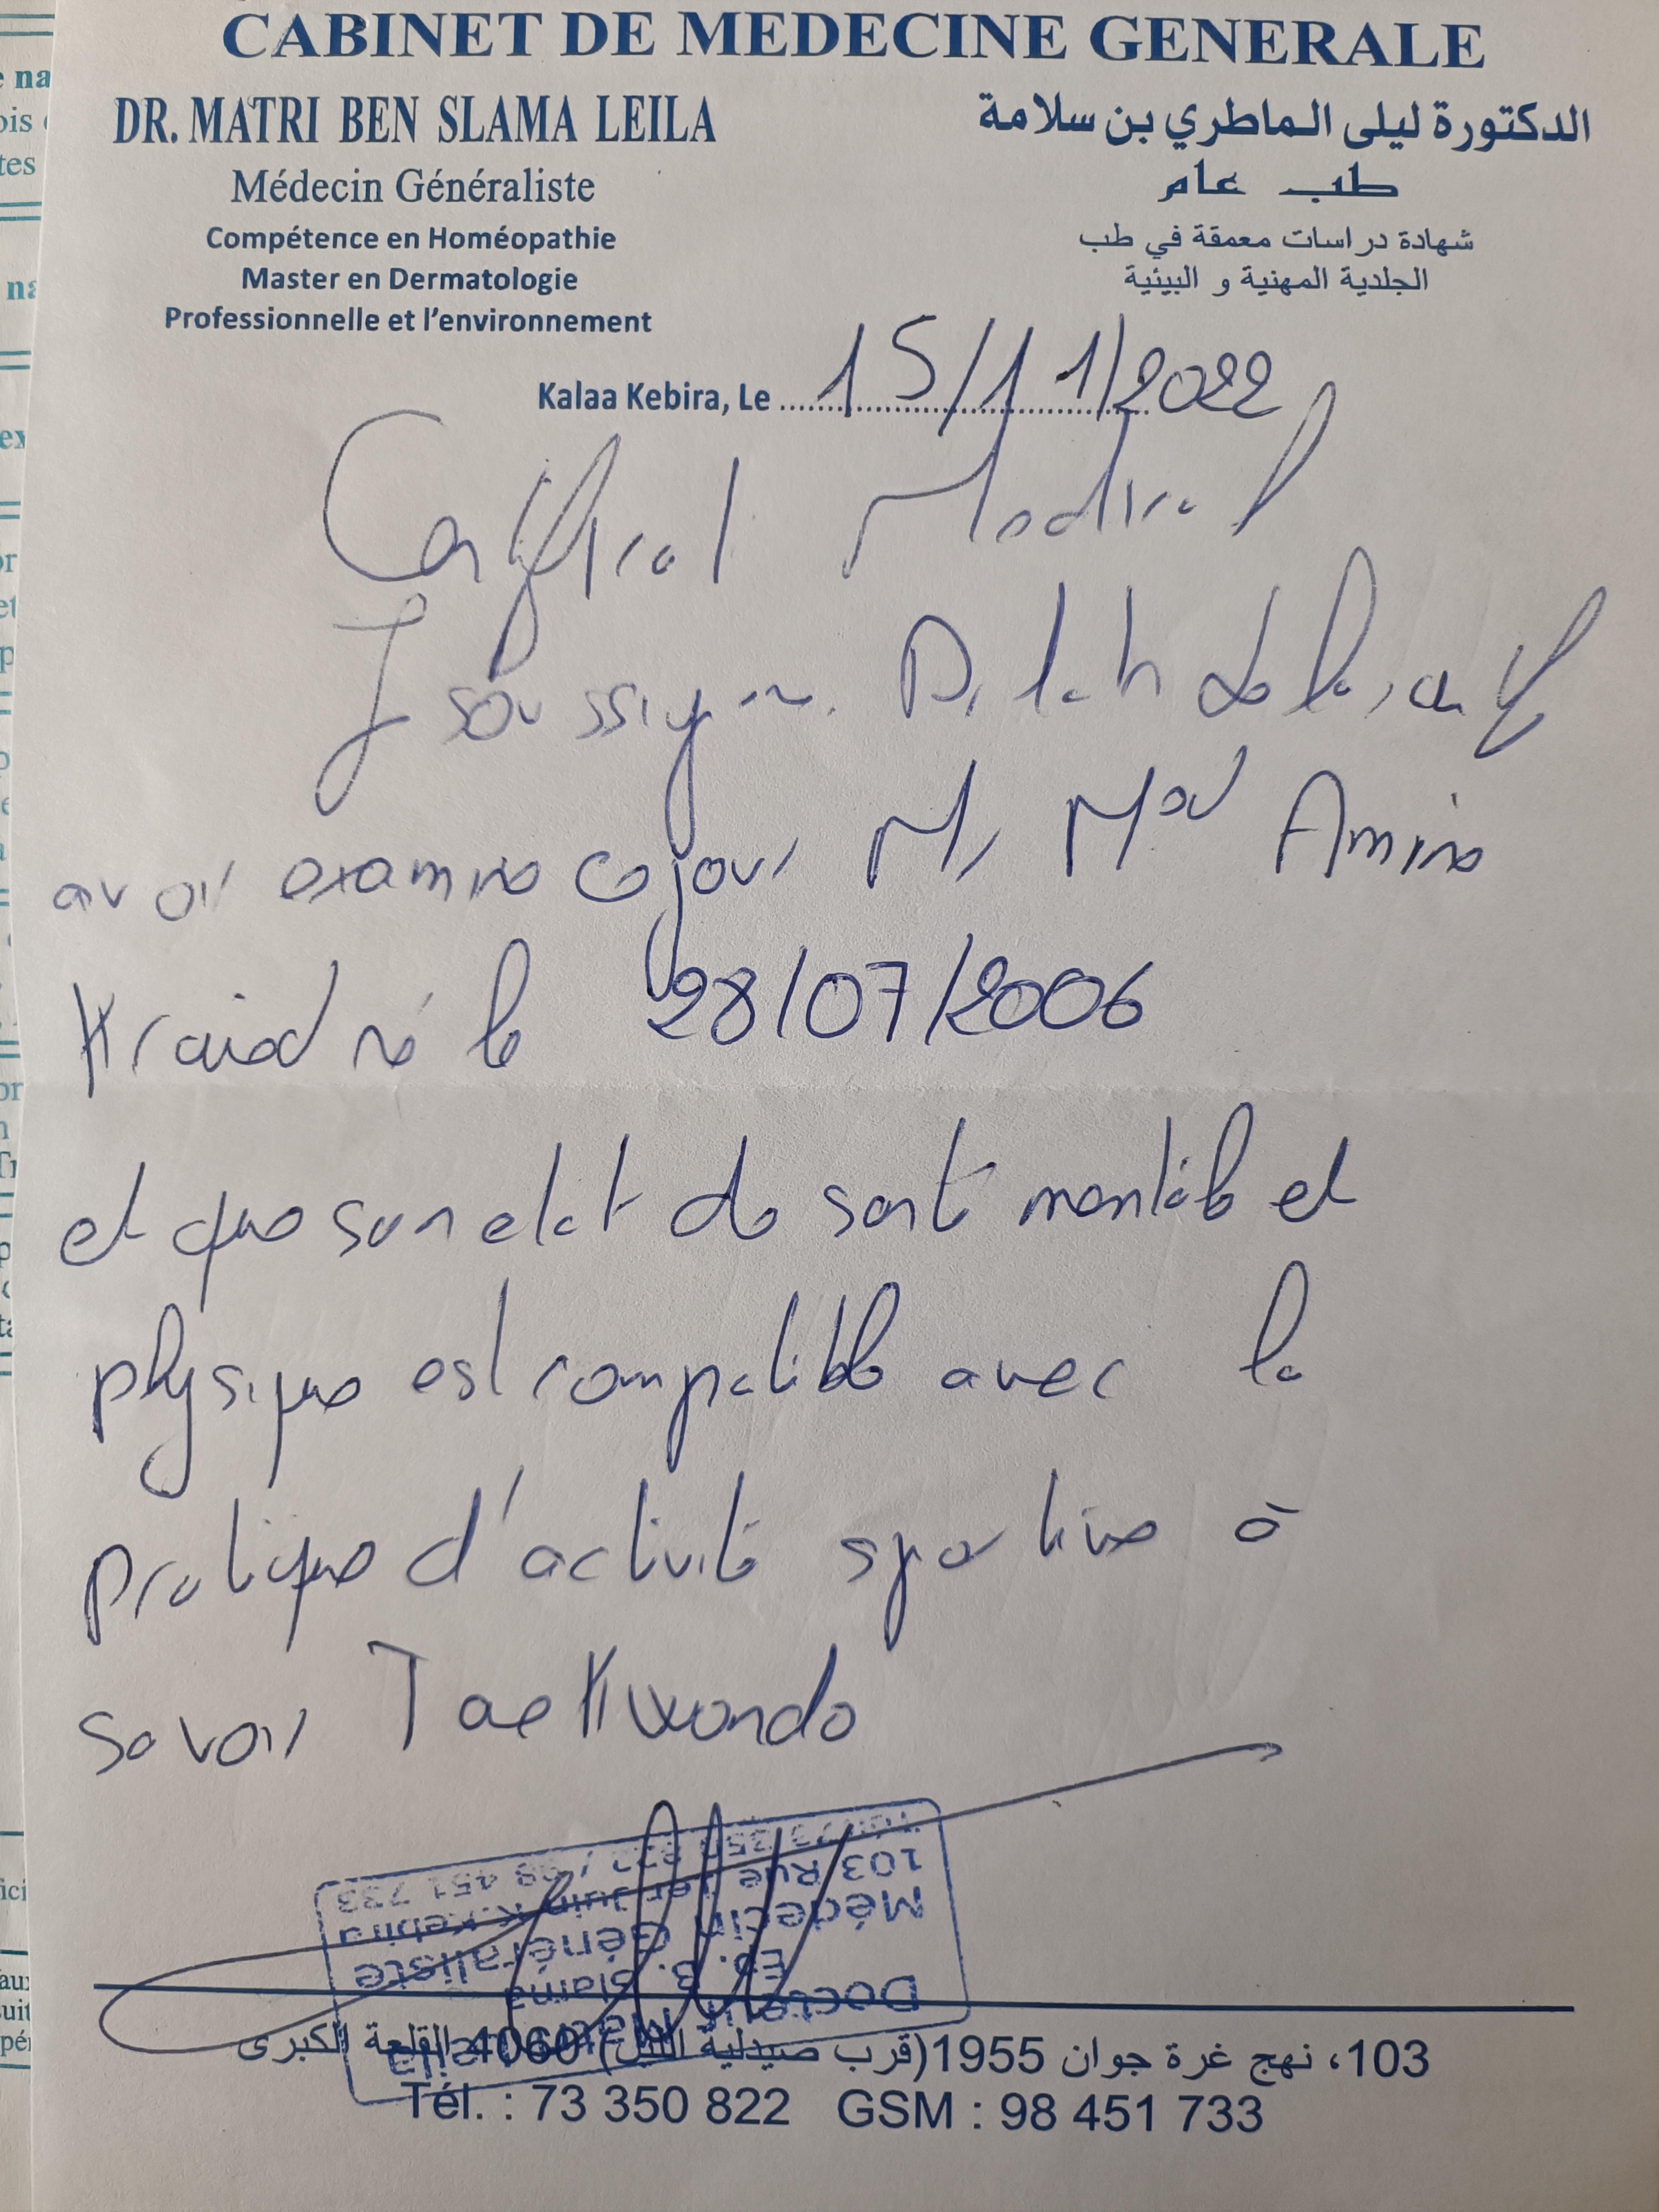 CABINET DE MEDECINE GENERALE
DR. MATRI BEN SLAMA LEILA
Médecin Généraliste
Compétence en Homéopathie
Master en Dermatologie
Professionnelle et l'environnement
الدكتورة ليلى الماطري بن سلامة
طب عام
شهادة دراسات معمقة في طب
الجلدية المهنية و البيئية
Kalaa Kebira, Le 15/11/2022
Certificat Medical
Je soussigne. Dr
avoir examine ce jour Mr Med Amine
Kraied né le 28/07/2006
et que son etat de santé mentale et
physique est compatible avec la
pratique d'activité sportive à
savoir Taekwondo
Docteur Matri Leila
Ep. B. Slama
Médecin Généraliste
103 Rue 1er Juin K.Kebira
Tél: 73 350 822 / 98 451 733
103، نهج غرة جوان 1955 (قرب صيدلية الليل) 4060 القلعة الكبرى
Tél. : 73 350 822 GSM : 98 451 733